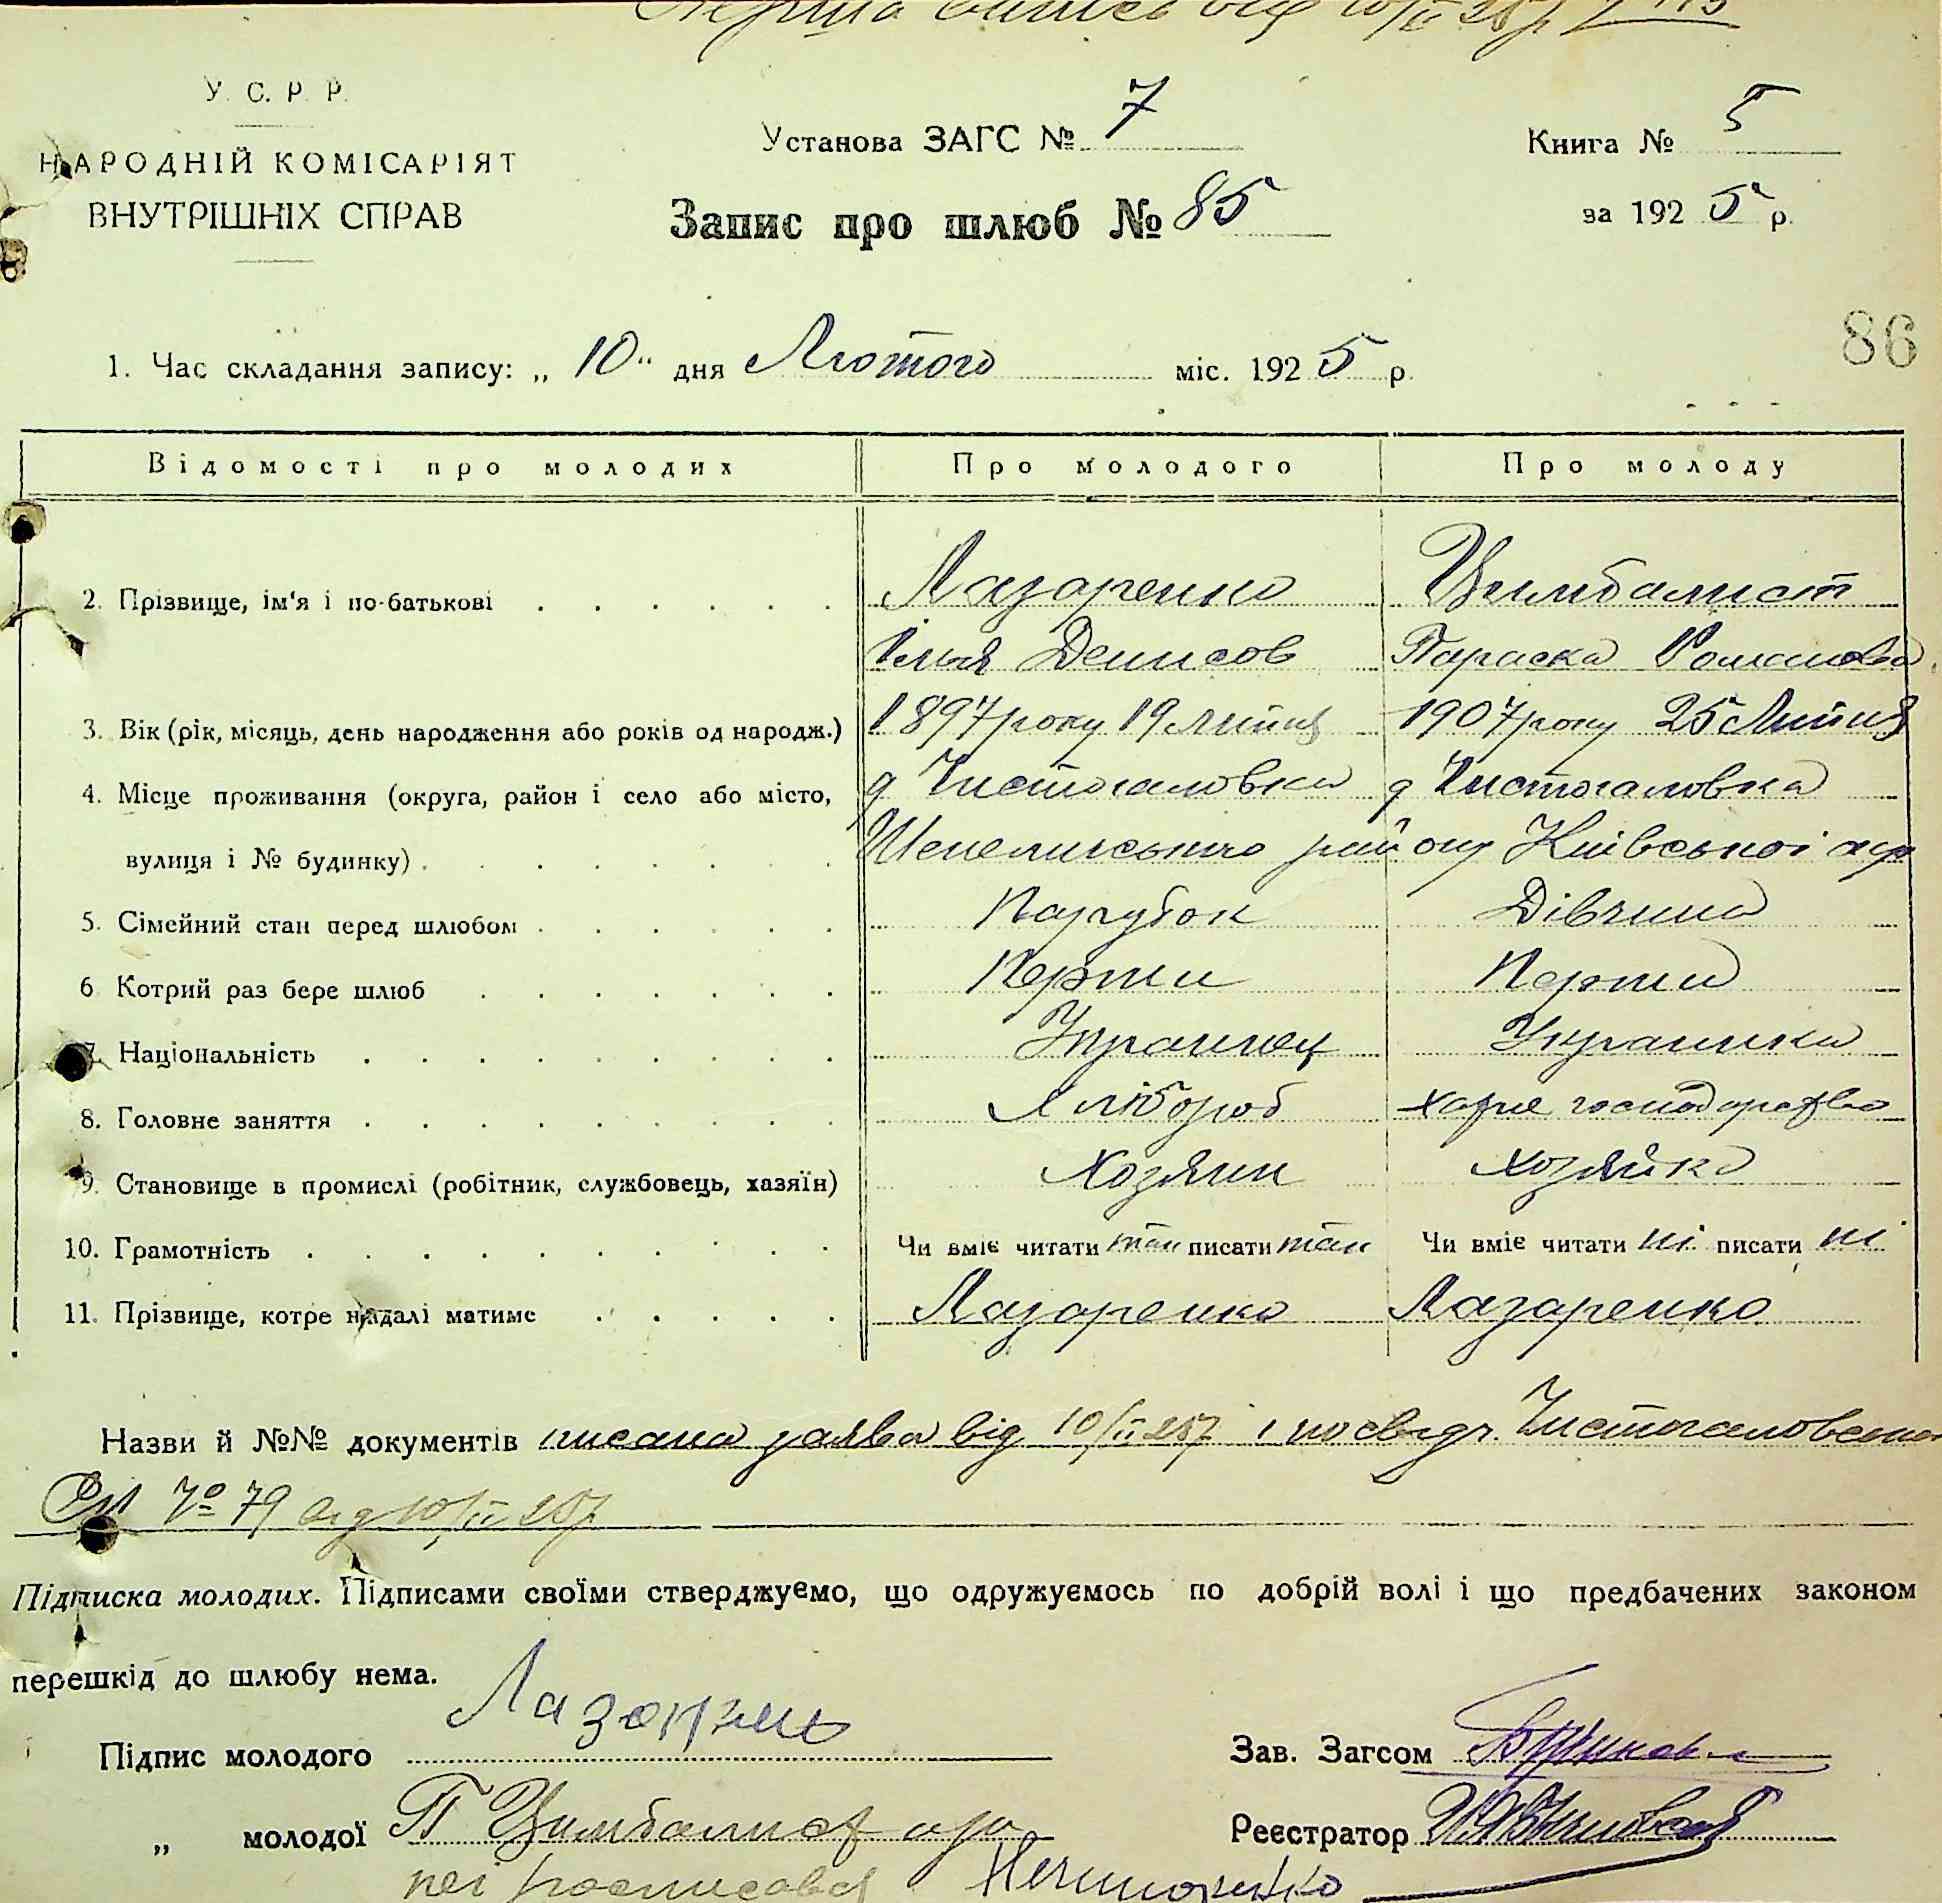 У. С. Р. Р.
НАРОДНІЙ КОМІСАРІЯТ
ВНУТРІШНІХ СПРАВ
Установа ЗАГС № 7
Запис про шлюб № 85
Книга № 5
за 1925 р.
86
1. Час складання запису: „ 10 " дня Лютого міс. 1925 р.
Відомості про молодих Про молодого Про молоду
2. Прізвище, ім'я і по-батькові Лазаренко Цимбалист
Ілья Денисов Параска Романова
3. Вік (рік, місяць, день народження або років од народж.) 1897 року 19 липця 1907 року 25 Липця
4. Місце проживання (округа, район і село або місто, д Чистогаловка д Чистогаловка
вулиця і № будинку) Шепелиського району Київської окр
5. Сімейний стан перед шлюбом Парубок Дівчина
6 Котрий раз бере шлюб Перши Перши
7. Національність Украинец Украинка
8. Головне заняття Хлібороб хатне господарство
9. Становище в промислі (робітник, службовець, хазяїн) Хозяин Хозяйка
10. Грамотність Чи вміє читати так писати так Чи вміє читати ні писати ні
11. Прізвище, котре надалі матиме Лазаренко Лазаренко
Назви й №№ документів писана заява від 10/II 25р і посвідч. Чистогаловского
№ 79 від 10/II 25р
Підписка молодих. Підписами своїми стверджуємо, що одружуємось по добрій волі і що предбачених законом
перешкід до шлюбу нема.
Підпис молодого
Зав. Загсом
„ молодої П Цимбалист
Реєстратор
неї росписався